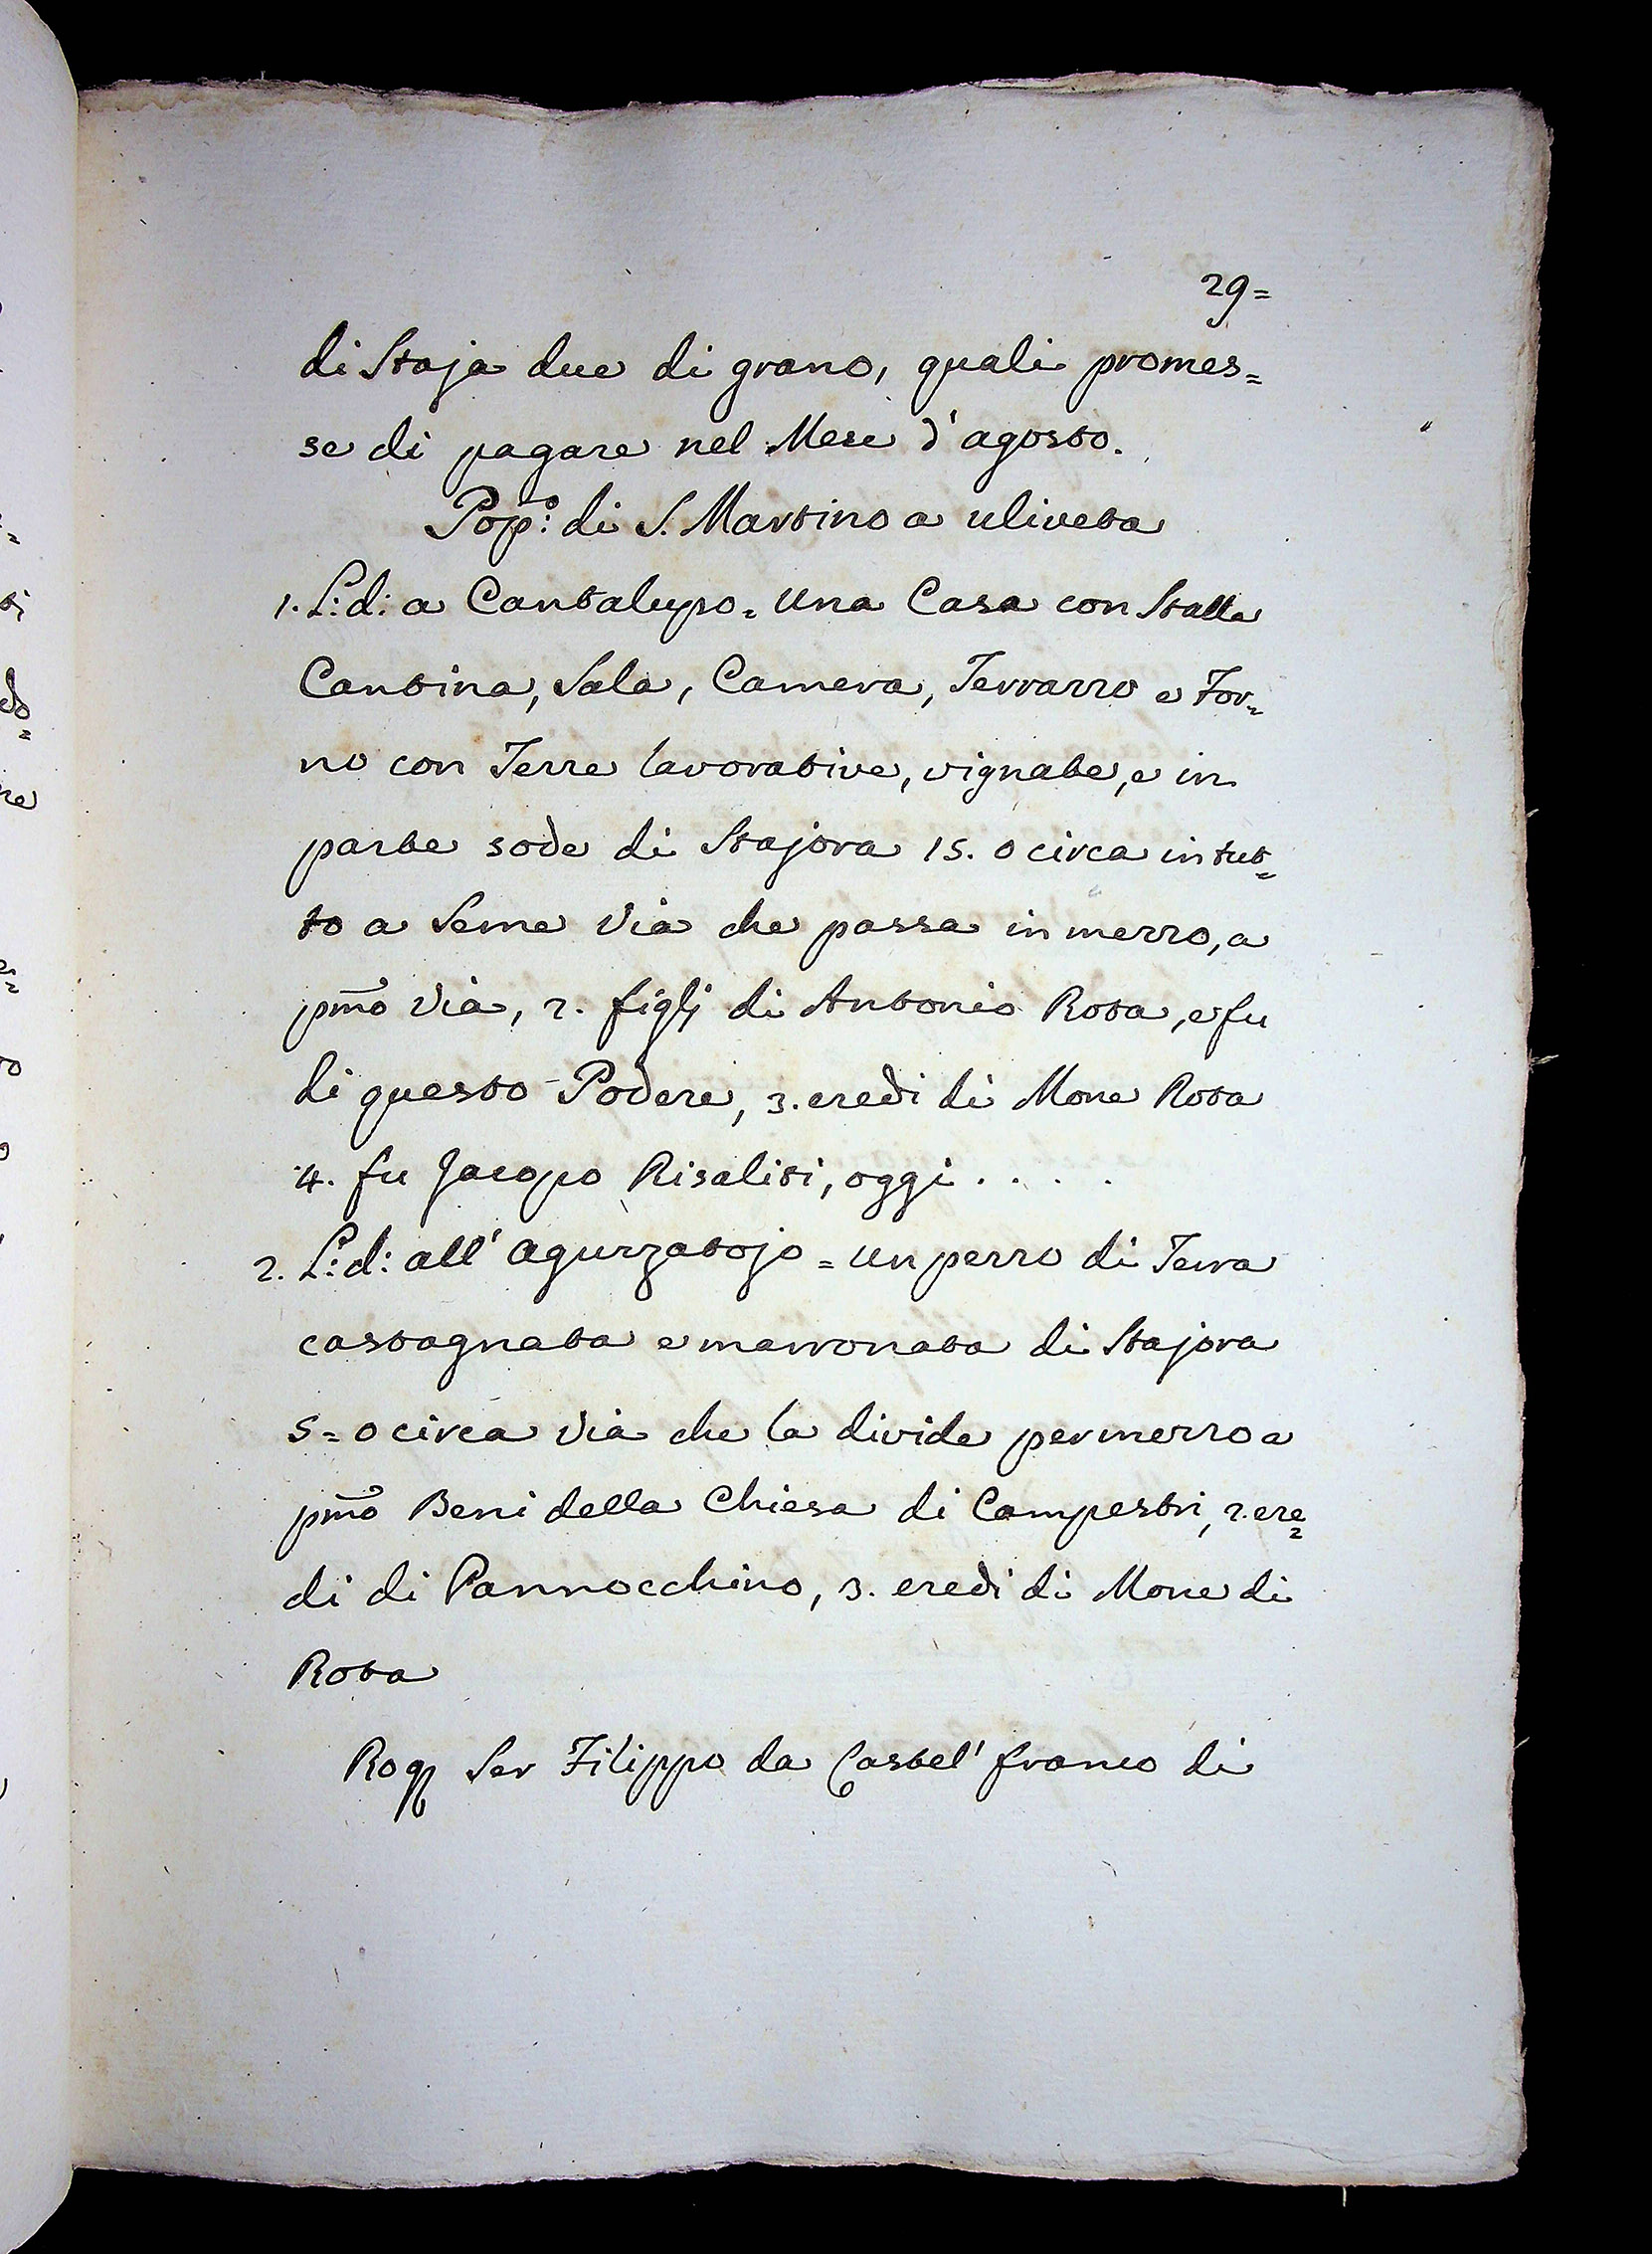 29=
di Staja due di grano, quali promes=
se di pagare nel Mese d'agosto.
Pop:º di S. Martino a uliveta
1. L:d: a Cantalupo = Una Casa con Stalla
Cantina, Sala, Camera, Terrazzo e For=
no con Terre lavorative, vignate, e in
parte sode di Stajora 15. o circa in tut=
to a Seme Via che passa in mezzo, a
pmo Via, 2. figlj di Antonio Rota, e fu
di questo Podere, 3. eredi di Mone Rota
4. fu Jacopo Risaliti, oggi . . . .
2. L:d: all' Aguzzatojo = un pezzo di Terra
castagnata e marronata di Stajora
5= o circa Via che la divide per mezzo a
pmo Beni della Chiesa di Campestri, 2. ere=
di di Pannocchino, 3. eredi di Mone di
Rota
Rog Ser Filippo da Castel' franco di